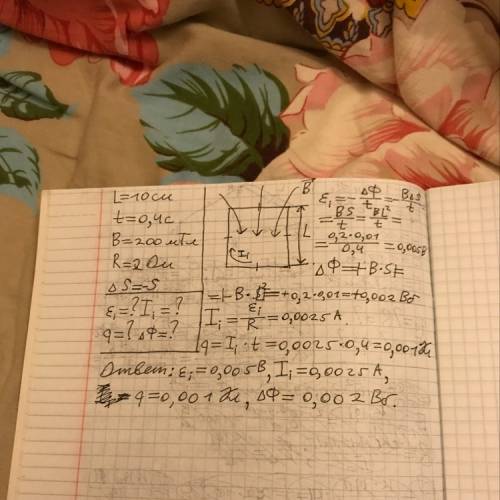 L=10см
t=0,4с
B=200мТл
R=2Ом
ΔS=-S
εi=? Ii=?
q=? ΔΦ=?
B
L
Ii
εi=-ΔΦ/t=-BΔS/t=
=BS/t=BL²/t=
=0,2·0,01/0,4=0,005В
ΔΦ=|-B·S|=
=|-B·L²|=+0,2·0,01=+0,002Вб
Ii=εi/R=0,0025А.
q=Ii·t=0,0025·0,4=0,001Кл
Ответ: εi=0,005В, Ii=0,0025А,
q=0,001Кл, ΔΦ=0,002Вб.